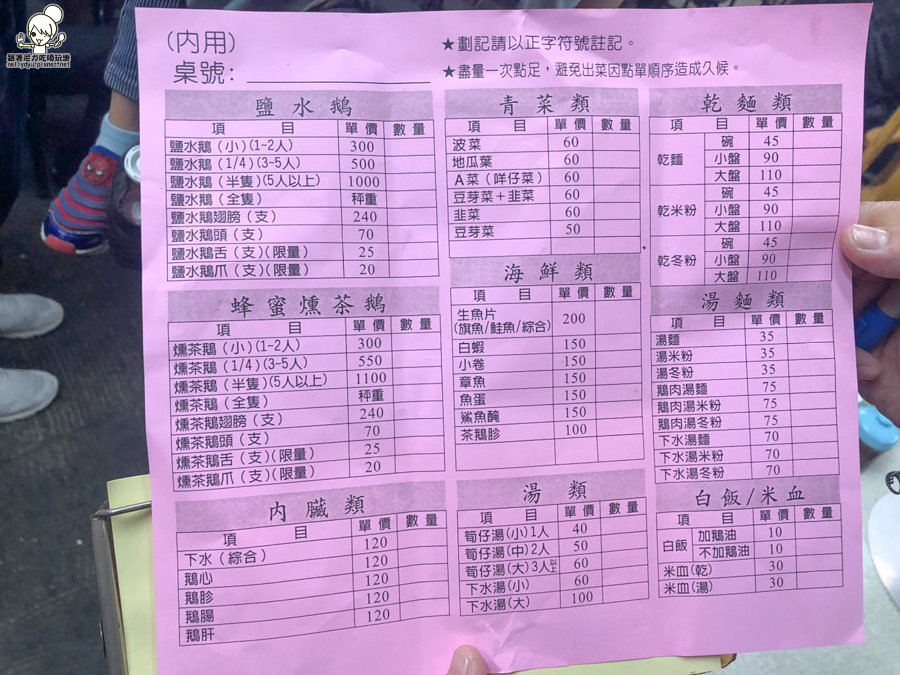 跟著尼力吃喝玩樂
nellydyu.pixnet.net
(內用)
桌號:
★劃記請以正字符號註記。
★盡量一次點足，避免出菜因點單順序造成久候。
鹽水鵝
項目 單價 數量
鹽水鵝(小)(1~2人) 300
鹽水鵝(1/4)(3~5人) 500
鹽水鵝(半隻)(5人以上) 1000
鹽水鵝(全隻) 秤重
鹽水鵝翅膀(支) 240
鹽水鵝頭(支) 70
鹽水鵝舌(支)(限量) 25
鹽水鵝爪(支)(限量) 20
蜂蜜燻茶鵝
項目 單價 數量
燻茶鵝(小)(1~2人) 300
燻茶鵝(1/4)(3~5人) 550
燻茶鵝(半隻)(5人以上) 1100
燻茶鵝(全隻) 秤重
燻茶鵝翅膀(支) 240
燻茶鵝頭(支) 70
燻茶鵝舌(支)(限量) 25
燻茶鵝爪(支)(限量) 20
內臟類
項目 單價 數量
下水(綜合) 120
鵝心 120
鵝胗 120
鵝腸 120
鵝肝 120
青菜類
項目 單價 數量
波菜 60
地瓜葉 60
A菜(咩仔菜) 60
豆芽菜+韭菜 60
韭菜 60
豆芽菜 50
海鮮類
項目 單價 數量
生魚片
(旗魚/鮭魚/綜合) 200
白蝦 150
小卷 150
章魚 150
魚蛋 150
鯊魚醃 150
茶鵝胗 100
湯類
項目 單價 數量
筍仔湯(小)1人 40
筍仔湯(中)2人 50
筍仔湯(大)3人以上 60
下水湯(小) 60
下水湯(大) 100
乾麵類
項目 單價 數量
乾麵 碗 45
小盤 90
大盤 110
乾米粉 碗 45
小盤 90
大盤 110
乾冬粉 碗 45
小盤 90
大盤 110
湯麵類
項目 單價 數量
湯麵 35
湯米粉 35
湯冬粉 35
鵝肉湯麵 75
鵝肉湯米粉 75
鵝肉湯冬粉 75
下水湯麵 70
下水湯米粉 70
下水湯冬粉 70
白飯/米血
項目 單價 數量
白飯 加鵝油 10
不加鵝油 10
米血(乾) 30
米血(湯) 30